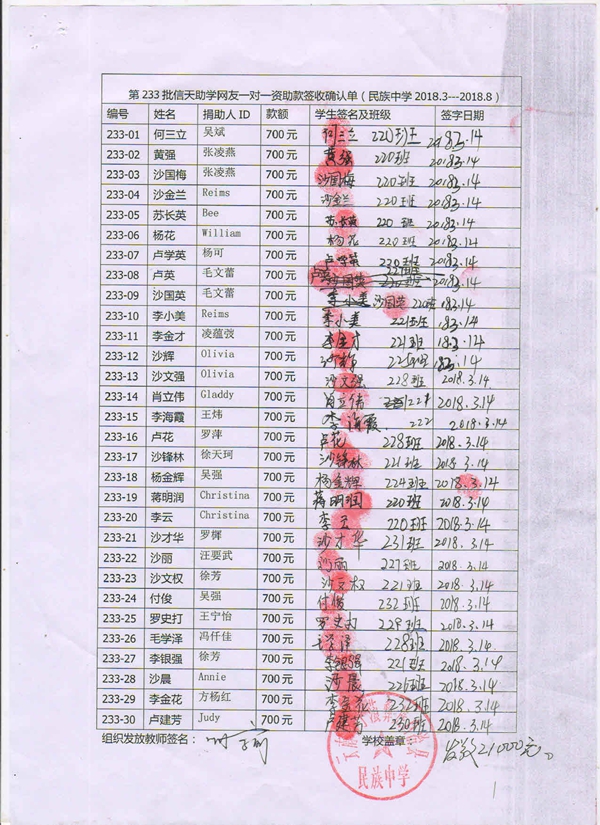 第 233 批信天助学网友一对一资助款签收确认单（民族中学 2018.3---2018.8）
编号 姓名 捐助人 ID 款额 学生签名及班级 签字日期
233-01 何三立 吴斌 700 元 何三立 220班 2018.3.14
233-02 黄强 张凌燕 700 元 黄强 220班 2018.3.14
233-03 沙国梅 张凌燕 700 元 沙国梅 220班 2018.3.14
233-04 沙金兰 Reims 700 元 沙金兰 220班 2018.3.14
233-05 苏长英 Bee 700 元 苏长英 220班 2018.3.14
233-06 杨花 William 700 元 杨花 220班 2018.3.14
233-07 卢学英 杨可 700 元 卢学英 220班 2018.3.14
233-08 卢英 毛文蕾 700 元 卢英 2018.3.14
233-09 沙国英 毛文蕾 700 元 李小美 沙国英 220班 183.14
233-10 李小美 Reims 700 元 李小美 221班 183.14
233-11 李金才 凌蕴弢 700 元 李金才 221班 183.14
233-12 沙辉 Olivia 700 元 沙辉 183.14
233-13 沙文强 Olivia 700 元 沙文强 228班 2018.3.14
233-14 肖立伟 Gladdy 700 元 肖立伟 221 2018.3.14
233-15 李海霞 王炜 700 元 李海霞 222 2018.3.14
233-16 卢花 罗萍 700 元 卢花 228班 2018.3.14
233-17 沙锋林 徐天珂 700 元 沙锋林 221班 2018.3.14
233-18 杨金辉 吴强 700 元 杨金辉 224班 2018.3.14
233-19 蒋明润 Christina 700 元 蒋明润 220班 2018.3.14
233-20 李云 Christina 700 元 李云 220班 2018.3.14
233-21 沙才华 罗樨 700 元 沙才华 231班 2018.3.14
233-22 沙丽 汪要武 700 元 沙丽 227班 2018.3.14
233-23 沙文权 徐芳 700 元 沙文权 221班 2018.3.14
233-24 付俊 吴强 700 元 付俊 232班 2018.3.14
233-25 罗史打 王宁怡 700 元 罗史打 229班 2018.3.14
233-26 毛学泽 冯仟佳 700 元 毛学泽 228班 2018.3.14
233-27 李银强 徐芳 700 元 李银强 221班 2018.3.14
233-28 沙晨 Annie 700 元 沙晨 226班 2018.3.14
233-29 李金花 方杨红 700 元 李金花 232班 2018.3.14
233-30 卢建芳 Judy 700 元 卢建芳 230班 2018.3.14
组织发放教师签名： 学校盖章： 发款21000元。
民族中学
1